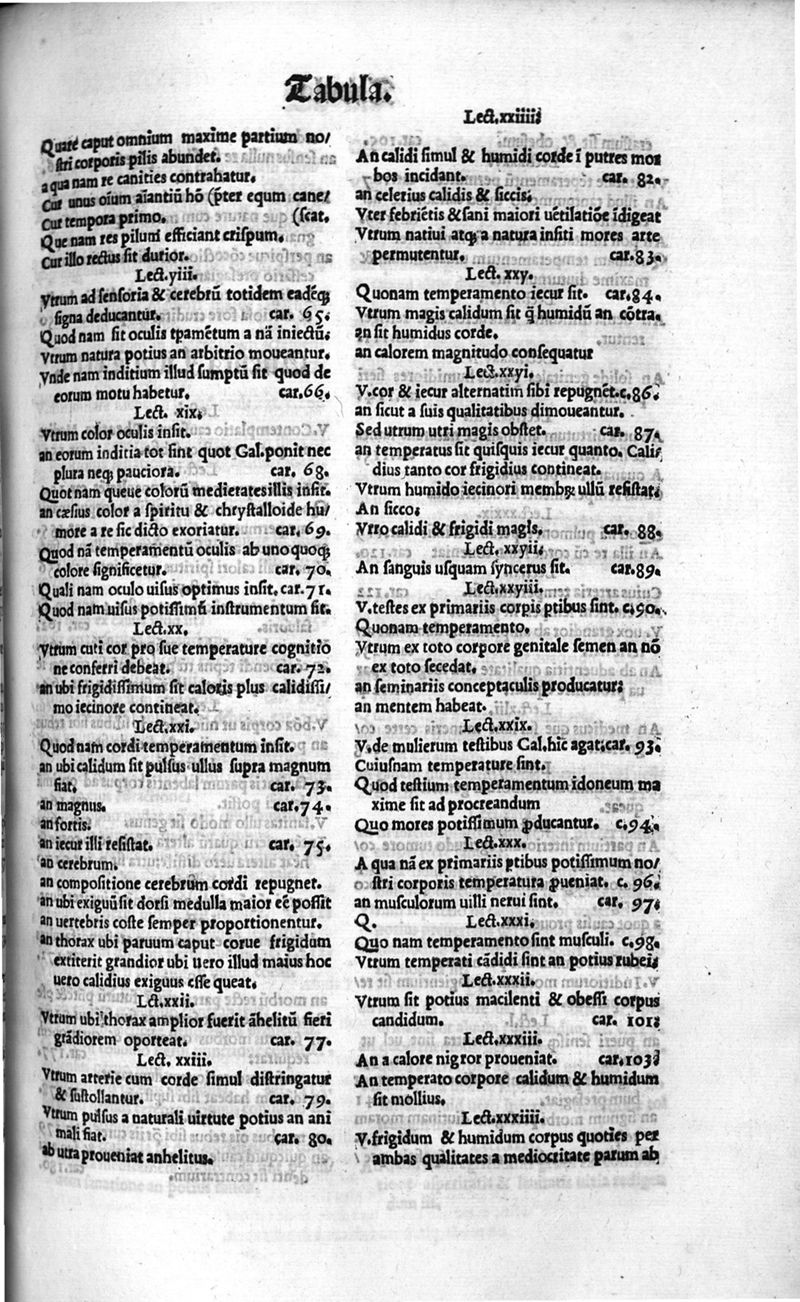 Tabula.
Quare caput omnium maxime partium no/
stri corporis pilis abundet.
a qua nam re canities contrahatur.
Cur unus oīum aīantiū hō (p̄ter equm cane/
Cur tempora primo. (scat.
Que nam res pilum efficiant crispum.
Cur illo rectus sit durior.
Lect.yiii.
Vtrum ad sensoria & cerebrū totidem eadēq;
signa deducantur. car. 65.
Quod nam sit oculis tpamētum a nā iniectū.
Vtrum natura potius an arbitrio moueantur.
Vnde nam inditium illud sumptū sit quod de
eorum motu habetur. car.66.
Lect. xix.
Vtrum color oculis insit.
an eorum inditia tot sint quot Gal.ponit nec
plura neq; pauciora. car. 68.
Quot nam queue colorū medietates illis insit.
an cæsius color a spiritu & chrystalloide hu/
more a re sic dicto exoriatur. car. 69.
Quod nā temperamentū oculis ab uno quoq;
colore significetur. car. 70.
Quali nam oculo uisus optimus insit. car.71.
Quod nam uisus potissimū instrumentum sit.
Lect.xx.
Vtrum cuti cor pro sue temperature cognitio
ne conferri debeat. car. 72.
an ubi frigidissimum sit caloris plus calidissi/
mo iecinore contineat.
Lect.xxi.
Quod nam cordi temperamentum insit.
an ubi calidum sit pulsus ullus supra magnum
fiat. car. 73.
an magnus. car.74.
an fortis.
an iecur illi resistat. car. 75.
an cerebrum.
an compositione cerebrum cordi repugnet.
an ubi exiguū sit dorsi medulla maior eē possit
an uertebris coste semper proportionentur.
an thorax ubi paruum caput corue frigidum
extiterit grandior ubi uero illud maius hoc
uero calidius exiguus esse queat.
Lct.xxii.
Vtrum ubi thorax amplior fuerit āhelitū fieri
grādiorem oporteat. car. 77.
Lect. xxiii.
Vtrum arterie cum corde simul distringatur
& sustollantur. car. 79.
Vtrum pulsus a naturali uirtute potius an ani
mali fiat. car. 80.
ab utra proueniat anhelitus.
Lect.xxiiii.
An calidi simul & humidi corde ī putres mor
bos incidant. car. 82.
an celerius calidis & siccis.
Vter febriētis & sani maiori uētilatiōe īdigeat
Vtrum natiui atq; a natura insiti mores arte
permutentur. car.83.
Lect.xxy.
Quonam temperamento iecur sit. car.84.
Vtrum magis calidum sit q̄ humidū an cōtra.
an sit humidus corde.
an calorem magnitudo consequatur
Lect.xxyi.
V.cor & iecur alternatim sibi repugnēt.c.86.
an sicut a suis qualitatibus dimoueantur.
Sed utrum utri magis obstet. car. 87.
an temperatus sit quisquis iecur quanto. Cali/
dius tanto cor frigidius contineat.
Vtrum humido iecinori membq; ullū resistat.
An sicco.
Vtro calidi & frigidi magis. car. 88.
Lect. xxyii.
An sanguis usquam syncerus sit. car.89.
Lect.xxyiii.
V.testes ex primariis corpis ptibus sint. c.90.
Quonam temperamento.
Vtrum ex toto corpore genitale semen an nō
ex toto secedat.
an seminariis conceptaculis producatur.
an mentem habeat.
Lect.xxix.
V.de mulierum testibus Gal.hic agat.car. 93.
Cuiusnam temperature sint.
Quod testium temperamentum idoneum ma
xime sit ad procreandum
Quo mores potissimum ꝓducantur. c.94.
Lect.xxx.
A qua nā ex primariis ptibus potissimum no/
stri corporis temperatura ꝓueniat. c. 96.
an musculorum uilli nerui sint. car. 97.
Q. Lect.xxxi.
Quo nam temperamento sint musculi. c.98.
Vtrum temperati cādidi sint an potius rubei.
Lect.xxxii.
Vtrum sit potius macilenti & obessi corpus
candidum. car. 101.
Lect.xxxiii.
An a calore nigror proueniat. car.103.
An temperato corpore calidum & humidum
sit mollius.
Lect.xxxiiii.
V.frigidum & humidum corpus quoties per
ambas qualitates a mediocritate parum ab